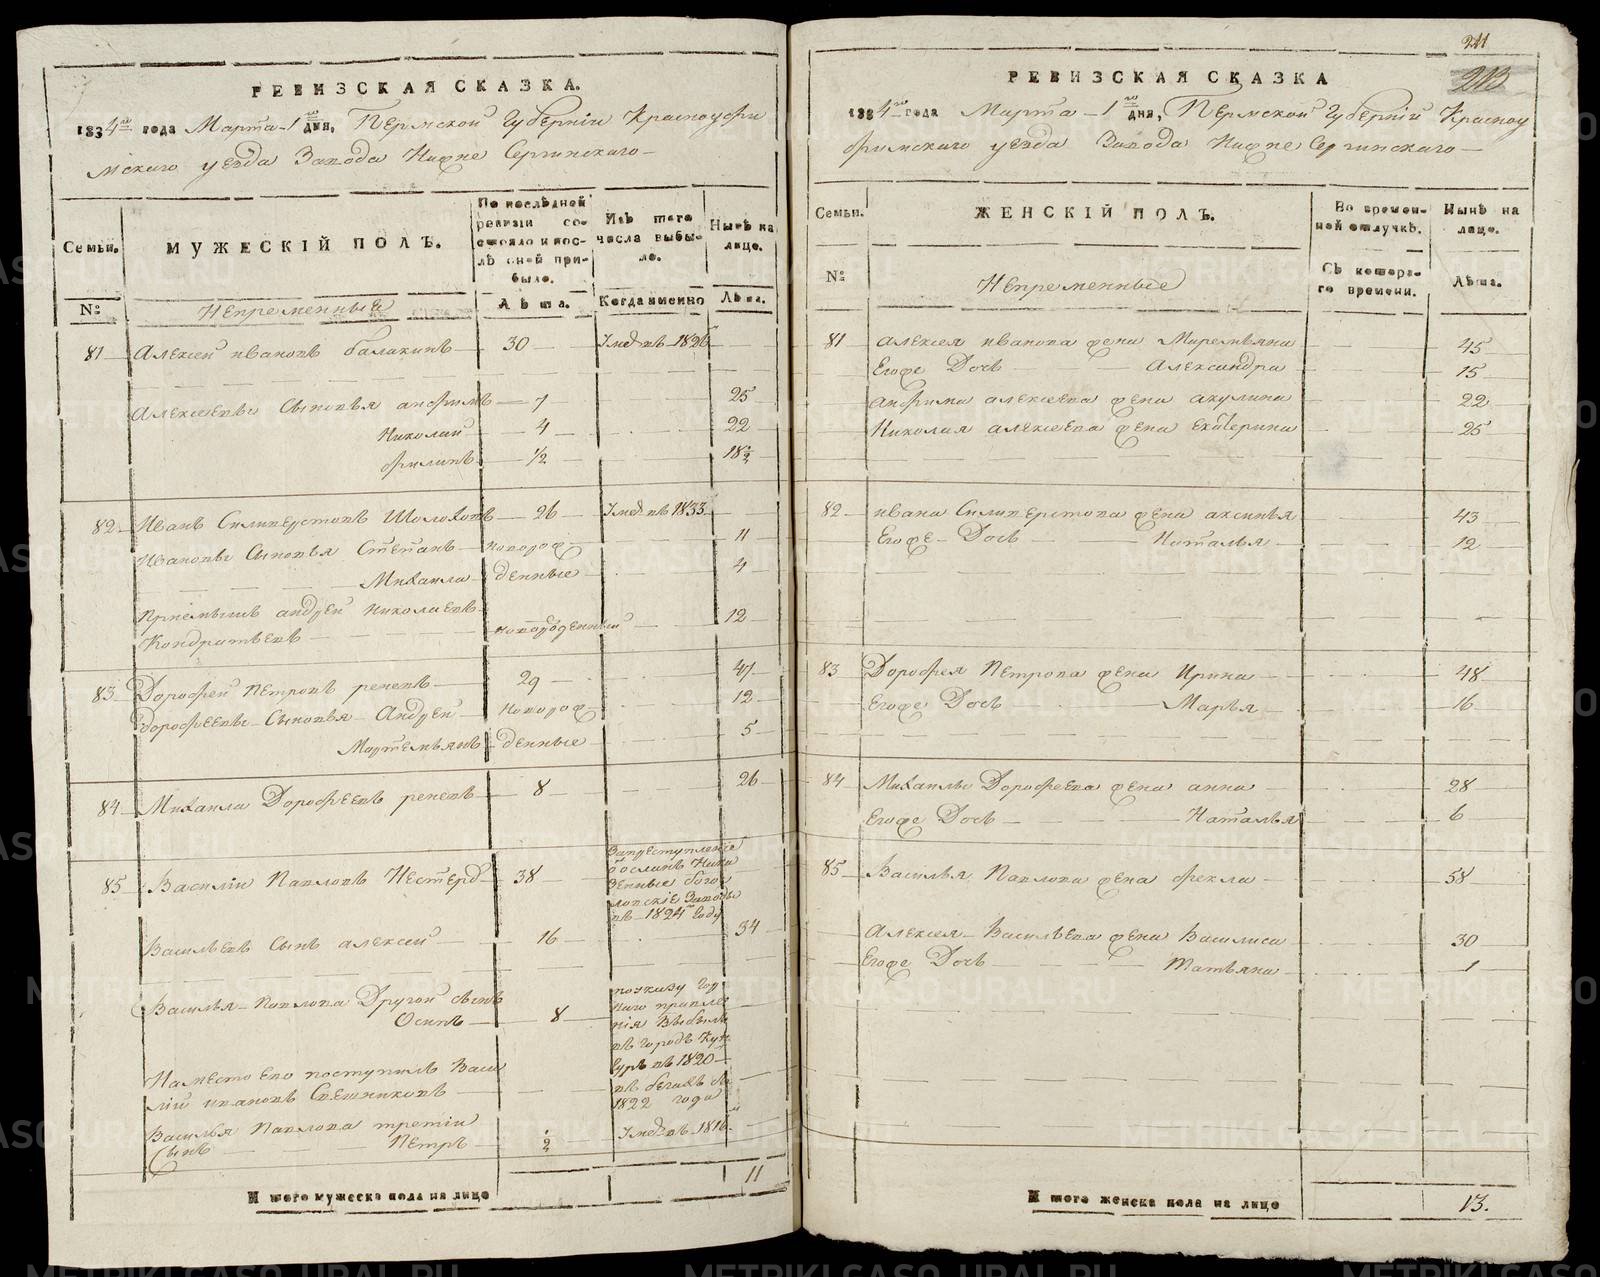 РЕВИЗСКАЯ СКАЗКА.
1834го года Марта 1го дня, Пермской Губерніи Красноуфи
мскаго уезда Завода Нижне Сергинскаго
Семьи.
МУЖЕСКІЙ ПОЛЪ.
По послѣдней ревизіи состояло и послѣ оной прибыло.
Изъ того числа выбыло.
Нынѣ на лице.
№
Непременный
Лѣта.
Когда именно
Лѣта.
81 Алексей Ивановъ Балакинъ 30 Умеръ въ 1826
Алексеевы Сыновья Анфимъ 7 25
Николай 4 22
Филипъ 1/2 18 1/2
82 Иванъ Силиверстовъ Шолоховъ 26 Умеръ въ 1833
Ивановы Сыновья Степанъ новорож 11
Михаила денные 4
Приемышъ Андрей Николаевъ 12
Кондратьевъ новорожденный
83 Дорофей Петровъ репевъ 29 47
Дорофеевы Сыновья Андрей новорож 12
Мартемьянъ денные 5
84 Михаила Дорофеевъ репевъ 8 26
85 Василій Павловъ 38 За преступленіе
посланъ
въ 1824 году
Васильевъ Сынъ Алексей 16 34
Василья Павлова Другой сынъ
Осипъ 8
Выбылъ
въ городъ Кун
гуръ въ 1820
На место его поступилъ Васи
лій Ивановъ Свешниковъ въ бегахъ съ
1822 года
Василья Павлова третій
Сынъ Петръ 1/2 Умеръ въ 1816
И того мужеска пола на лице 11
241
213
РЕВИЗСКАЯ СКАЗКА
1834го года Марта 1го дня, Пермской Губерніи Красноу
фимскаго уезда Завода Нижне Сергинскаго
Семьи.
ЖЕНСКІЙ ПОЛЪ.
Во временной отлучкѣ.
Нынѣ на лице.
№
Непременные
Съ котораго времени.
Лѣта.
81 Алексея Иванова жена Маремьяна 45
Егоже Дочь Александра 15
Анфима Алексеева жена Акулина 22
Николая Алексеева жена Екатерина 25
82 Ивана Силиверстова жена Аксинья 43
Егоже Дочь Наталья 12
83 Дорофея Петрова жена Ирина 48
Егоже Дочь Марья 16
84 Михаилы Дорофеева жена Анна 28
Егоже Дочь Наталья 6
85 Василья Павлова жена Фекла 58
Алексея Васильева жена Василиса 30
Егоже Дочь Татьяна 1
И того женска пола на лице 13.
METRIKI.GASO-URAL.RU